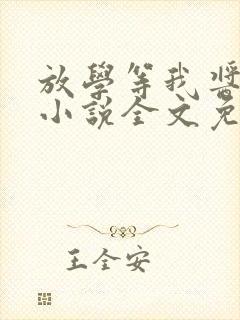 放學等我醬
小說全文免
王全安